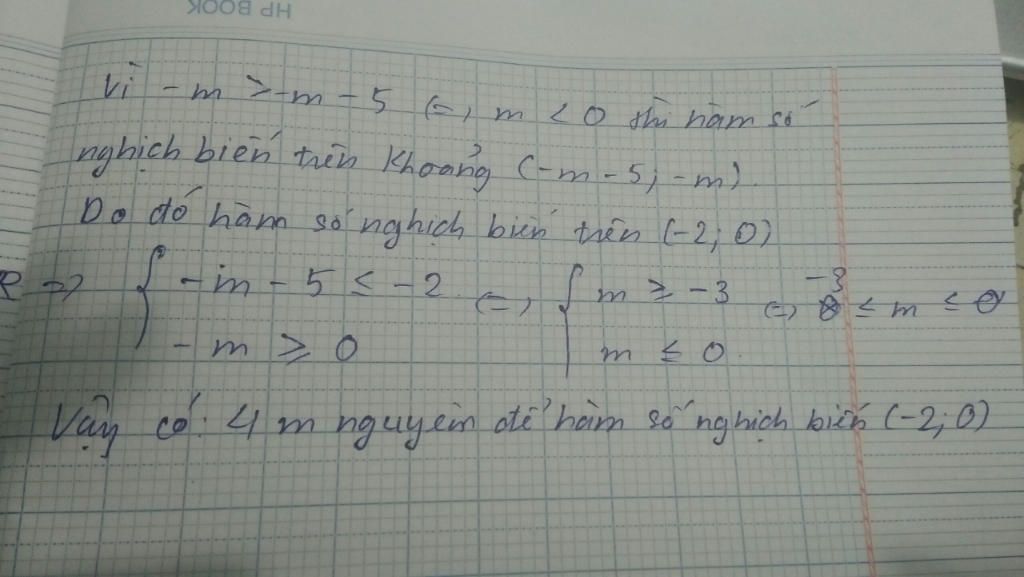 HP BOOK
Vì -m > -m - 5 <=> m < 0 thì hàm số
nghịch biến trên khoảng (-m - 5; -m).
Do đó hàm số nghịch biến trên (-2; 0)
=> { -m - 5 ≤ -2 <=> { m ≥ -3 <=> -3 ≤ m ≤ 0
-m ≥ 0 m ≤ 0.
Vậy có: 4 m nguyên để hàm số nghịch biến (-2; 0)